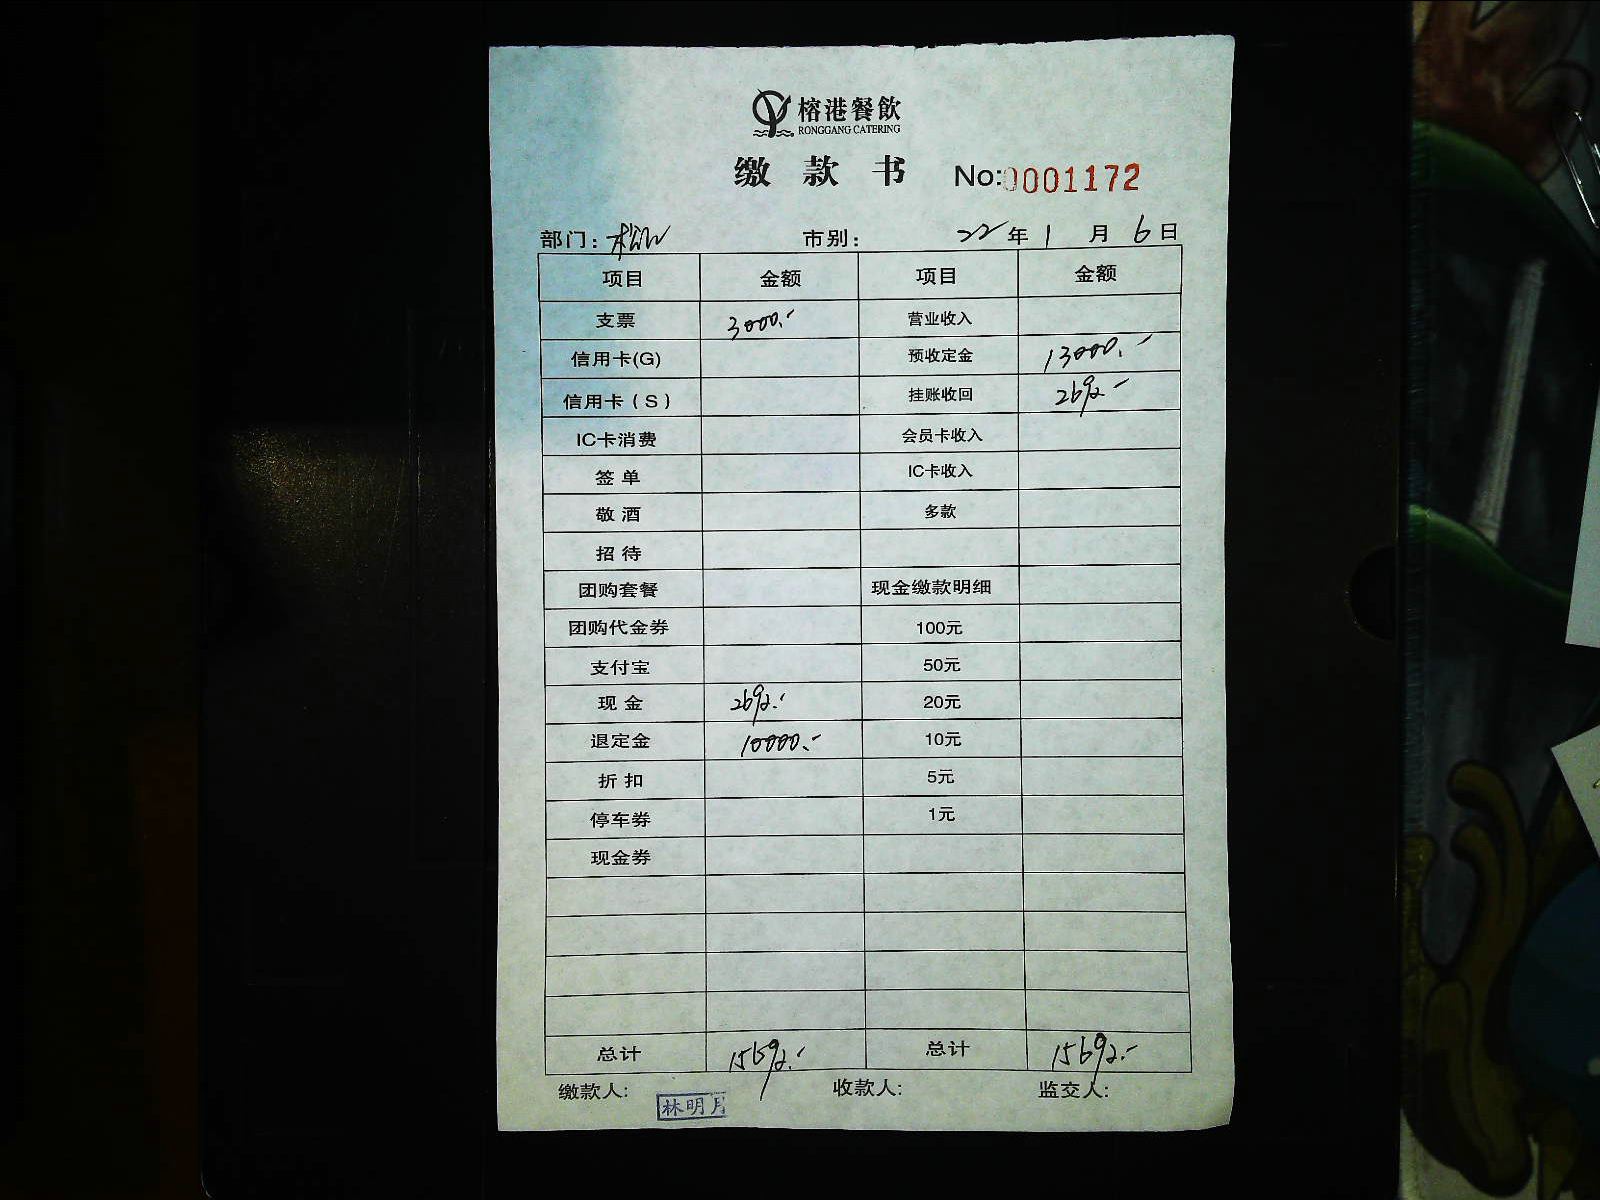 榕港餐飲
RONGGANG CATERING
缴款书 No:0001172
部门：松山 市别： 22年1月6日
项目 金额 项目 金额
支票 3000.- 营业收入
信用卡(G) 预收定金 13000.-
信用卡（S） 挂账收回 2692.-
IC卡消费 会员卡收入
签单 IC卡收入
敬酒 多款
招待
团购套餐 现金缴款明细
团购代金券 100元
支付宝 50元
现金 2692.- 20元
退定金 10000.- 10元
折扣 5元
停车券 1元
现金券
总计 15692.- 总计 15692.-
缴款人: 林明月 收款人: 监交人: